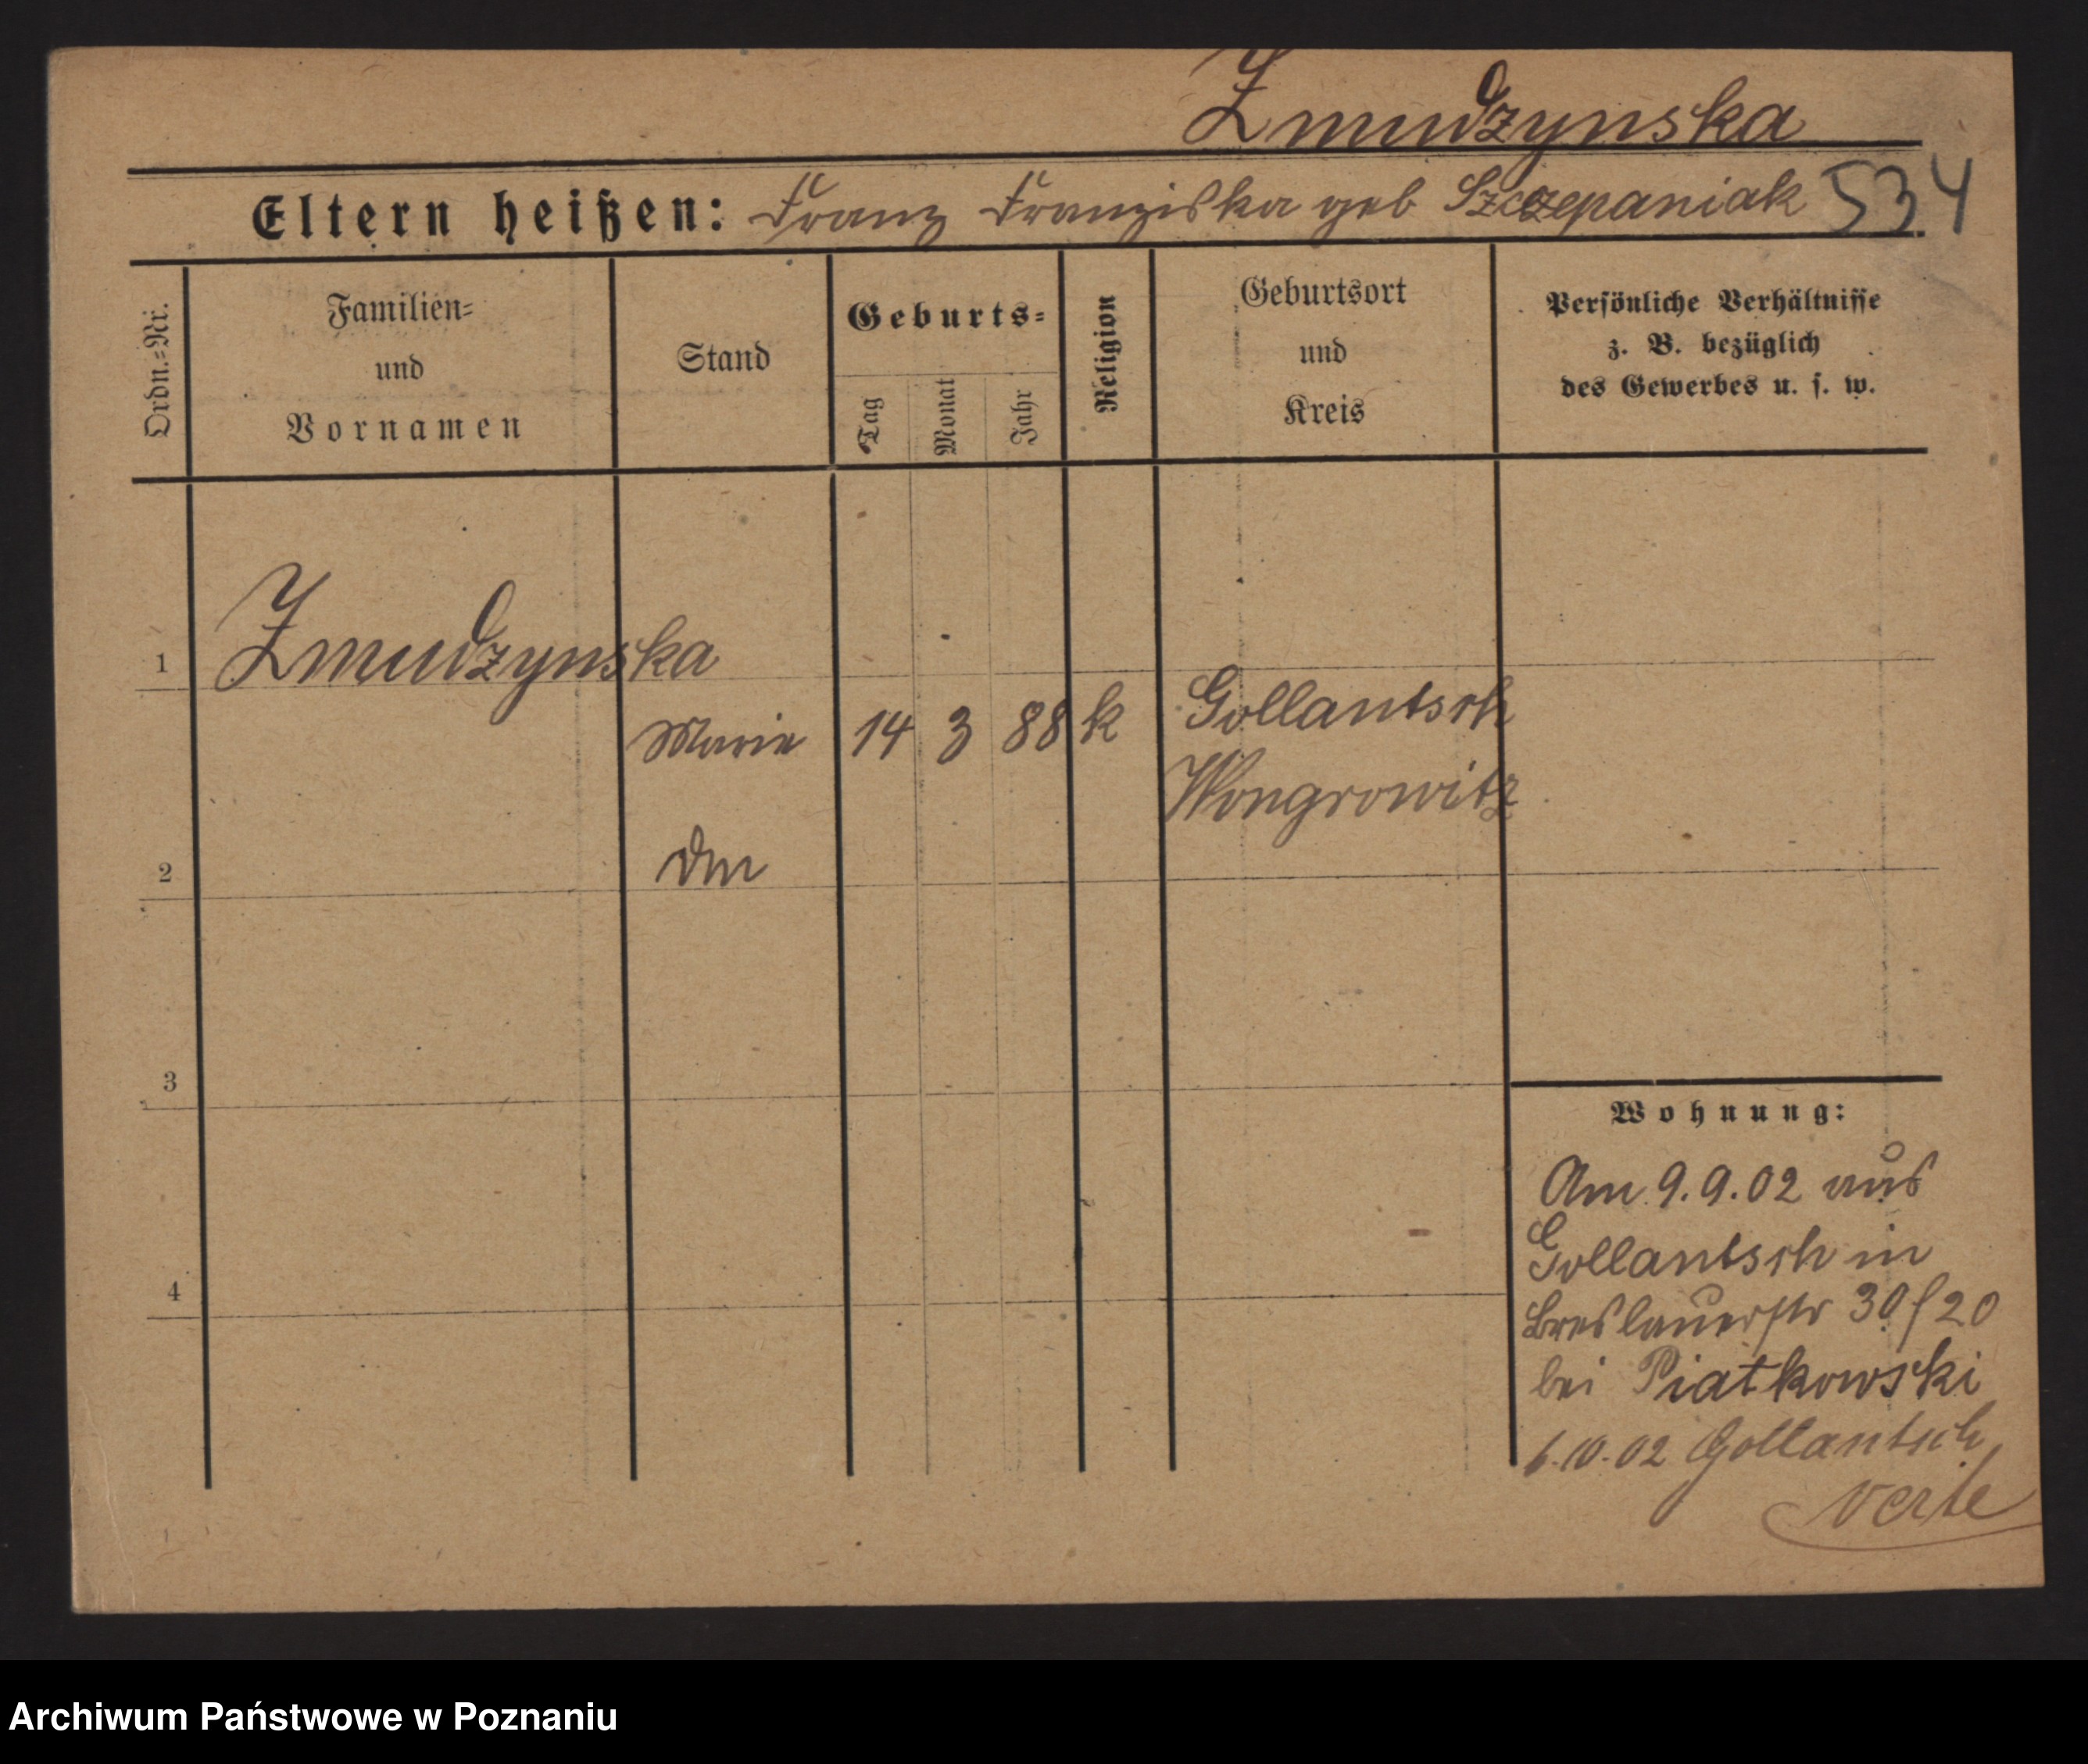 Zmudzynska
Eltern heißen: Franz Franziska geb Szczepaniak 534
Ordn.=Nr.
Familien=
und
Vornamen
Stand
Geburts=
Tag
Monat
Jahr
Religion
Geburtsort
und
Kreis
Persönliche Verhältnisse
z. B. bezüglich
des Gewerbes u. s. w.
1 Zmudzynska
Marie 14 3 88 k Gollantsch
Wongrowitz
2
3
4
Wohnung:
Am 9.9.02 aus
Gollantsch in
Breslauerstr 30/20
bei Piatkowski
6.10.02 Gollantsch
verte
Archiwum Państwowe w Poznaniu